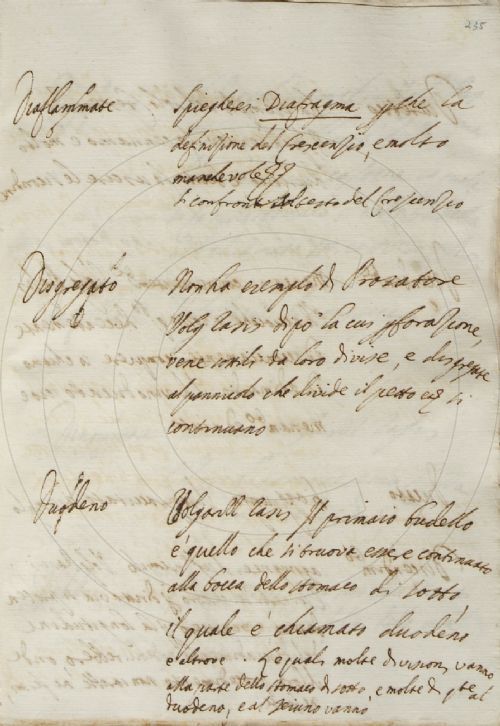 235
Diaflammate
Spieghisi Diafragma p che la
definizione del Crescenzio, e molto
manchevole
si confronti col testo del Crescenzio
Disgregato
Non ha esempio di Prosatore
Volg Rasis dipo' la cui pforazione,
vene sottili da loro divise, e disgregate
al pannicolo che divide il petto si
continuano
Duodeno
Volgarill Rasis Il primaio budello
è quello che si truova essere continuato
alla bocca dello stomaco di sotto,
il quale è chiamato duodeno
e altrove. Le quali molte divisioni vanno
alla parte dello stomaco di sotto, e molte di qste al
duodeno, e al jeiuno vanno